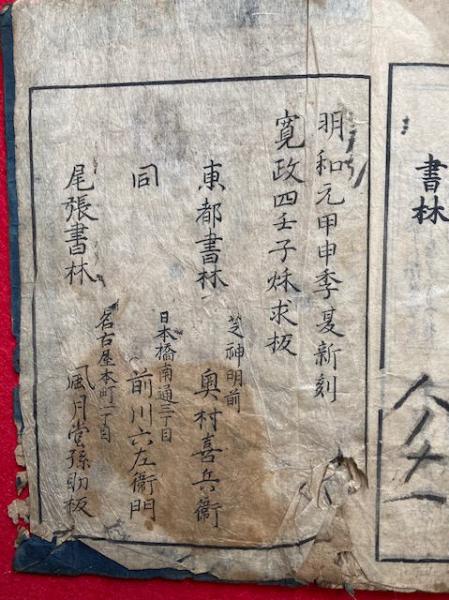 書林
明和元甲申季夏新刻
寛政四壬子秌求板
東都書林
芝神明前
奥村喜兵衛
同
日本橋南通三丁目
前川六左衛門
尾張書林
名古屋本町一丁目
風月堂孫助板